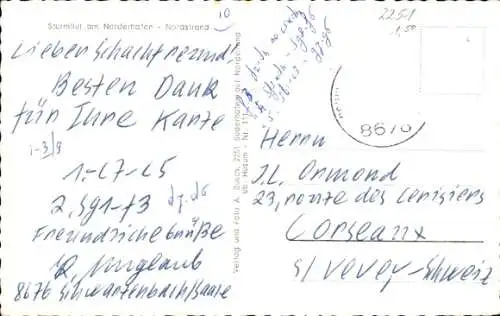 Sturmflut am Norderhafen - Nordstrand
10
2251
1,50
Lieber Schachfreund!
Besten Dank
für Ihre Karte
1-3/9
1. – c7-c5
2, Sg1-f3 d7-d6
Freundliche Grüße
8676 Schwarzenbach/Saale
Verlag und Foto A. 2251 Süderhafen auf Nordstrand
üb. Husum - Nr. 111
8670
Herrn
J.L. Ormond
23, route des Cerisiers
Corseaux
s/ Vevey-Schweiz